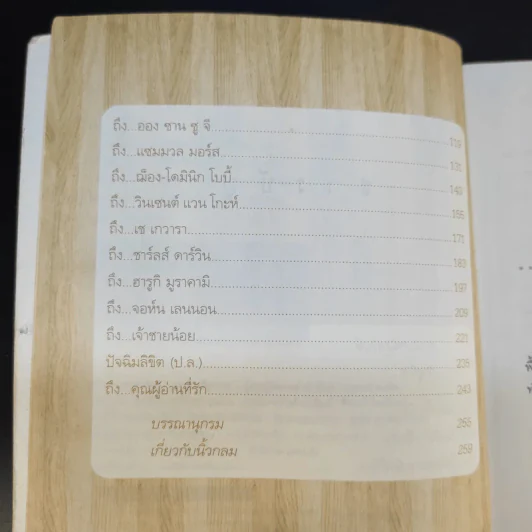 ถึง...ออง ซาน ซู จี 119
ถึง...แซมมวล มอร์ส 131
ถึง...ฌ็อง-โดมินิก โบบี้ 143
ถึง...วินเซนต์ แวน โกะห์ 155
ถึง...เช เกวารา 171
ถึง...ชาร์ลส์ ดาร์วิน 183
ถึง...ฮารูกิ มูราคามิ 197
ถึง...จอห์น เลนนอน 209
ถึง...เจ้าชายน้อย 221
ปัจฉิมลิขิต (ป.ล.) 235
ถึง...คุณผู้อ่านที่รัก 243
บรรณานุกรม 255
เกี่ยวกับนิ้วกลม 259